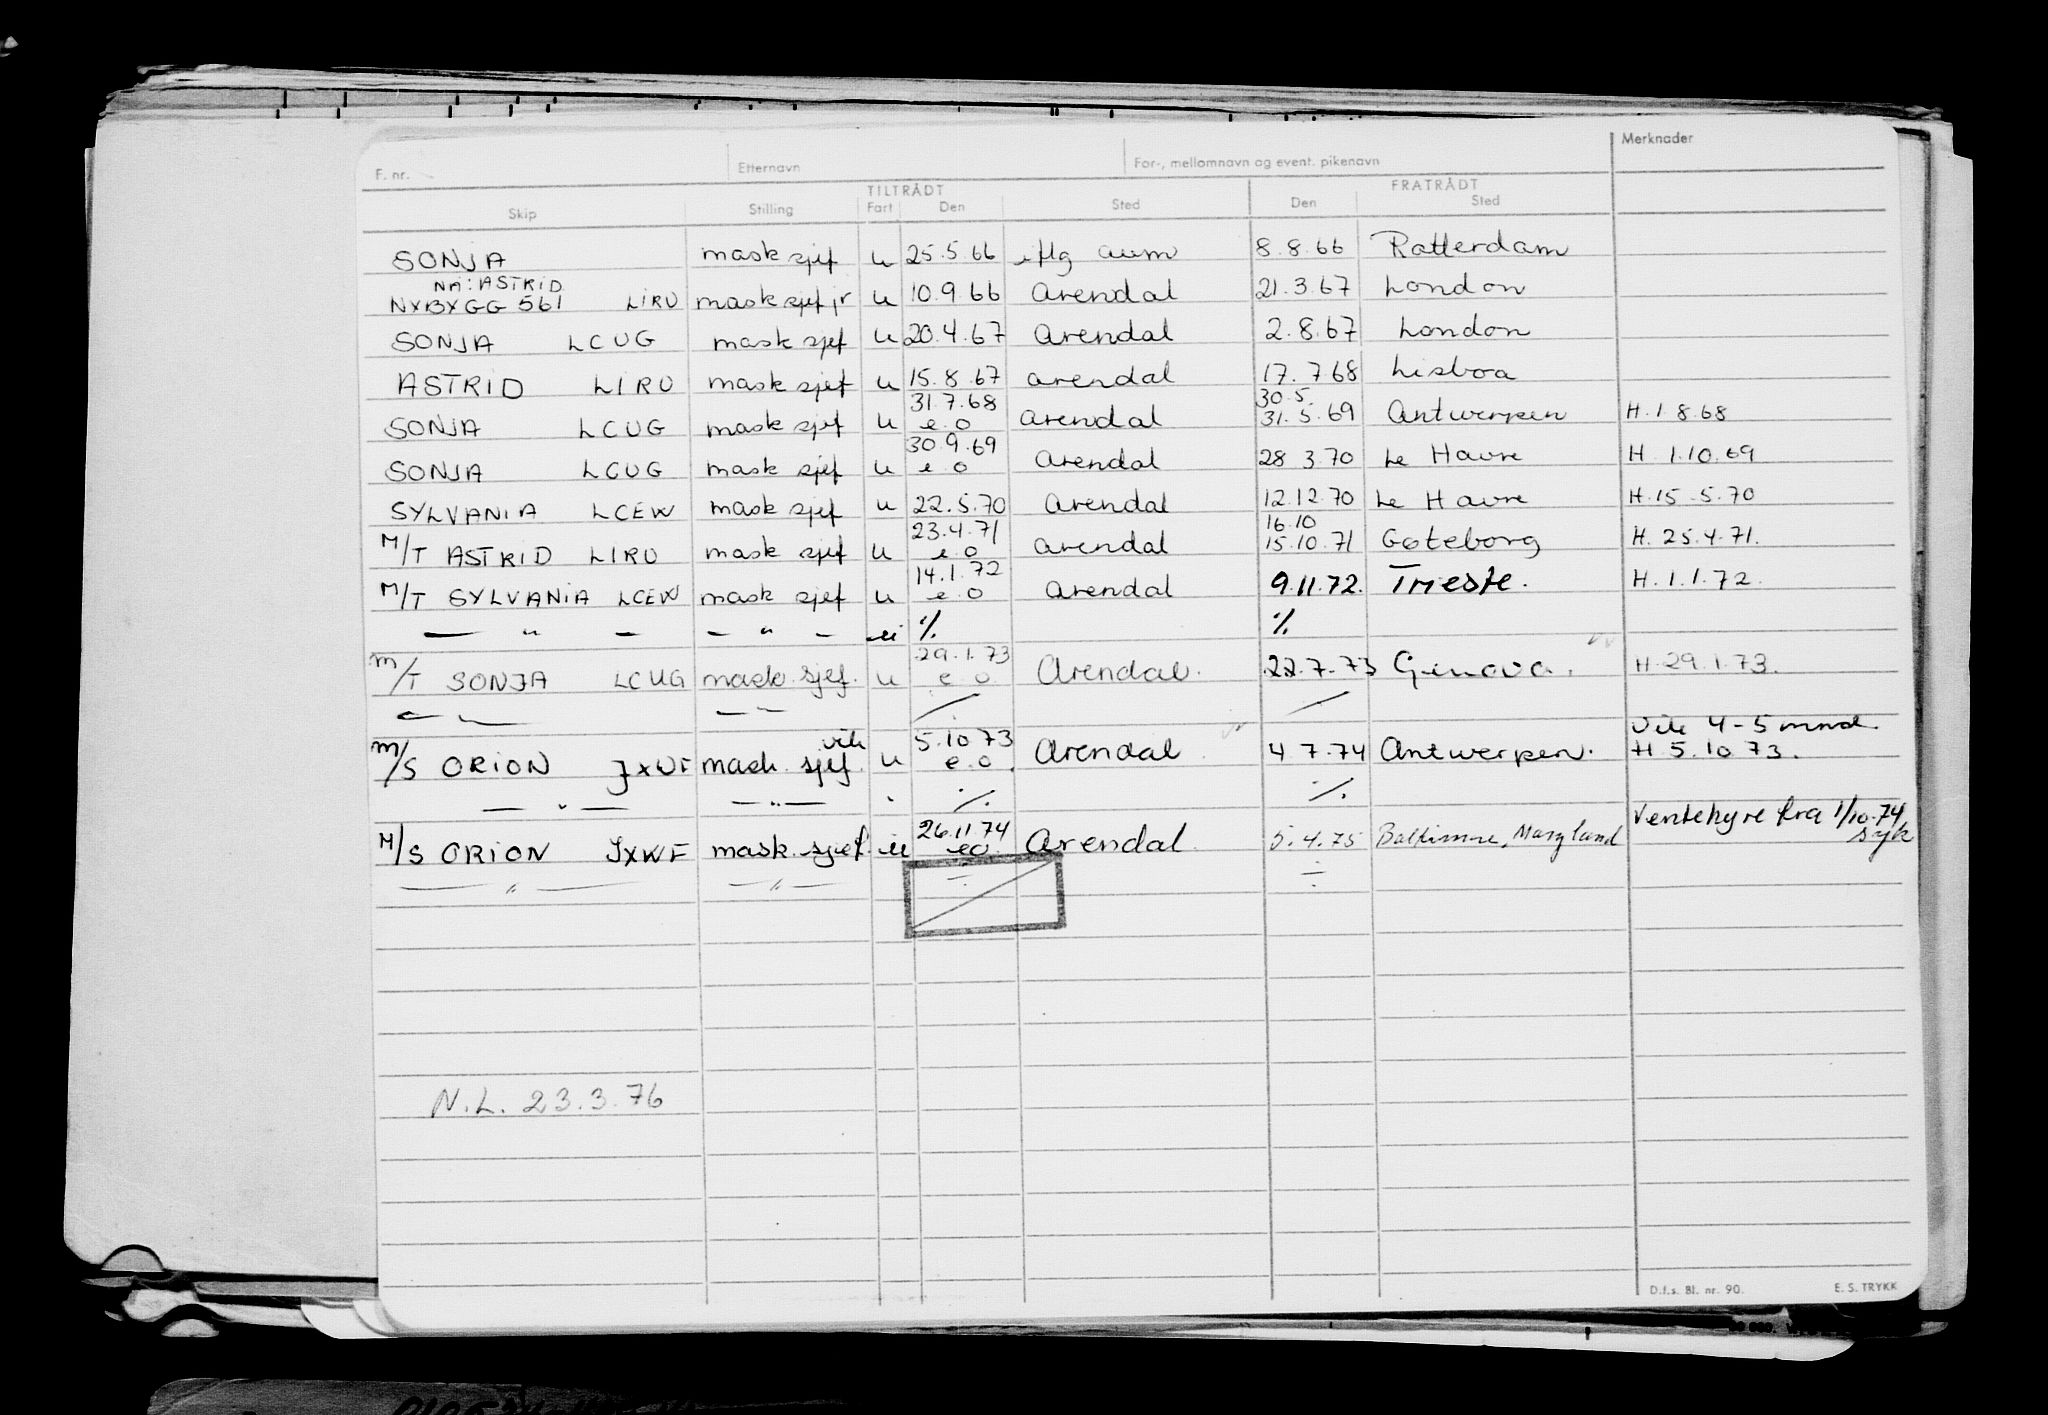 F. nr. Etternavn For-, mellomnavn og event. pikenavn Merknader
TILTRÅDT FRATRÅDT
Skip Stilling Fart Den Sted Den Sted
SONJA mask sjef u 25.5.66 iflg aum 8.8.66 Rotterdam
NÅ: ASTRID
NYBYGG 561 LIRU mask sjef jr u 10.9.66 Arendal 21.3.67 London
SONJA LCUG mask sjef u 20.4.67 Arendal 2.8.67 London
ASTRID LIRU mask sjef u 15.8.67 Arendal 17.7.68 Lisboa
31.7.68 30.5.
SONJA LCUG mask sjef u e.o Arendal 31.5.69 Antwerpen H.1.8.68
30.9.69
SONJA LCUG mask sjef u e.o Arendal 28.3.70 Le Havre H.1.10.69
SYLVANIA LCEW mask sjef u 22.5.70 Arendal 12.12.70 Le Havre H.15.5.70
23.4.71 16.10
M/T ASTRID LIRU mask sjef u e.o Arendal 15.10.71 Gøteborg H.25.4.71.
14.1.72
M/T SYLVANIA LCEW mask sjef u e.o Arendal 9.11.72. Trieste. H.1.1.72.
— " — — " — u ./. ./.
29.1.73
M/T SONJA LCUG mask. sjef. u e.o Arendal. 22.7.73 Genova. H.29.1.73.
— " — — " — / /
vik 5.10.73 Vik 4-5 mnd.
M/S ORION JXWF mask. sjef. u e.o. Arendal 4.7.74 Antwerpen. H.5.10.73.
— " — — " — ./. ./.
26.11.74 Ventehyre fra 1/10-74
M/S ORION JXWF mask. sjef. u eo. Arendal. 5.4.75 Baltimore, Maryland syk
— " — — " — ÷ ÷
N.L. 23.3.76
D.f.s. Bl. nr. 90. E. S. TRYKK